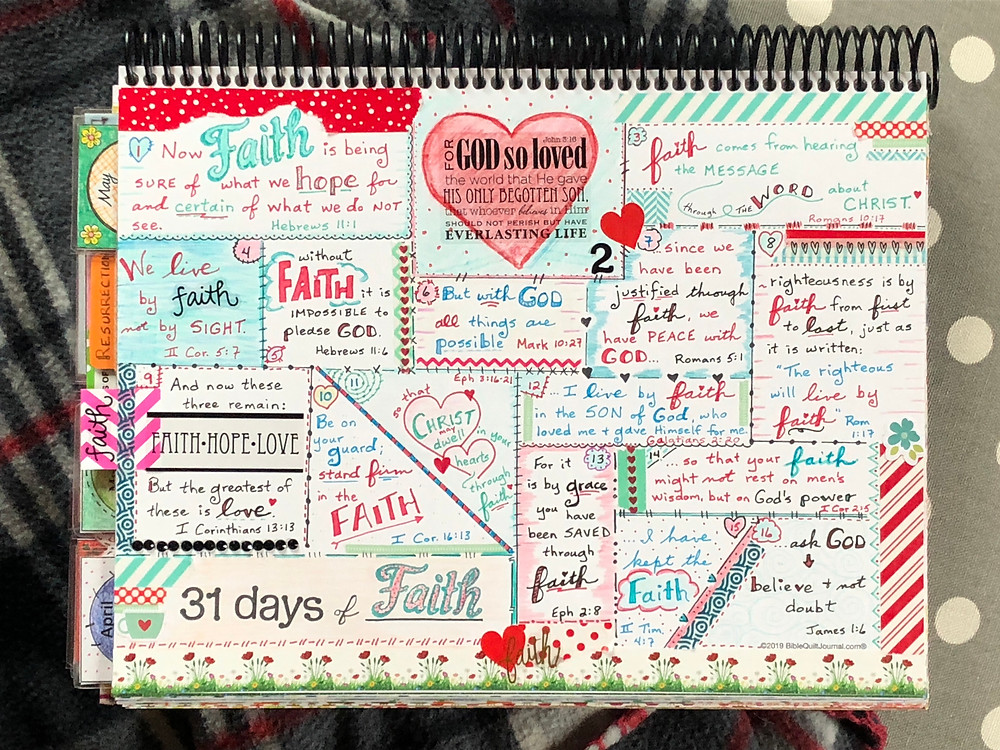 1 Now Faith is being
SURE of what we hope for
and certain of what we do NOT
see. Hebrews 11:1
John 3:16
FOR GOD so loved
the world that He gave
HIS ONLY BEGOTTEN SON,
that whoever believes in Him
SHOULD NOT PERISH BUT HAVE
EVERLASTING LIFE
2
3 faith comes from hearing
the MESSAGE
through THE WORD about
CHRIST.
Romans 10:17
4
We live
by faith
not by SIGHT.
II Cor. 5:7
without
FAITH it is
IMPOSSIBLE to
please GOD.
5 Hebrews 11:6
6 But with GOD
all things are
possible Mark 10:27
7 ...since we
have been
justified through
faith, we
have PEACE with
GOD... Romans 5:1
8
~righteousness is by
faith from first
to last, just as
it is written:
"The righteous
will live by
faith" Rom
1:17
9 And now these
three remain:
FAITH•HOPE•LOVE
But the greatest of
these is love.
I Corinthians 13:13
10
Be on
your
guard;
stand firm
in the
FAITH
I Cor. 16:13
11 Eph 3:16-21
so that
CHRIST
may
dwell in your
hearts
through
faith
12 ...I live by faith
in the SON of God, who
loved me + gave Himself for me.
Galatians 2:20
13
For it
is by grace
you have
been SAVED
through
faith
Eph 2:8
14 ...so that your faith
might not rest on men's
wisdom, but on God's power
I Cor 2:5
15
...I have
kept the
Faith
II Tim.
4:7
16 ...ask GOD
believe + not
doubt
James 1:6
©2019 BibleQuiltJournal.com®
31 days of Faith
faith
May
RESURRECTION
faith
April